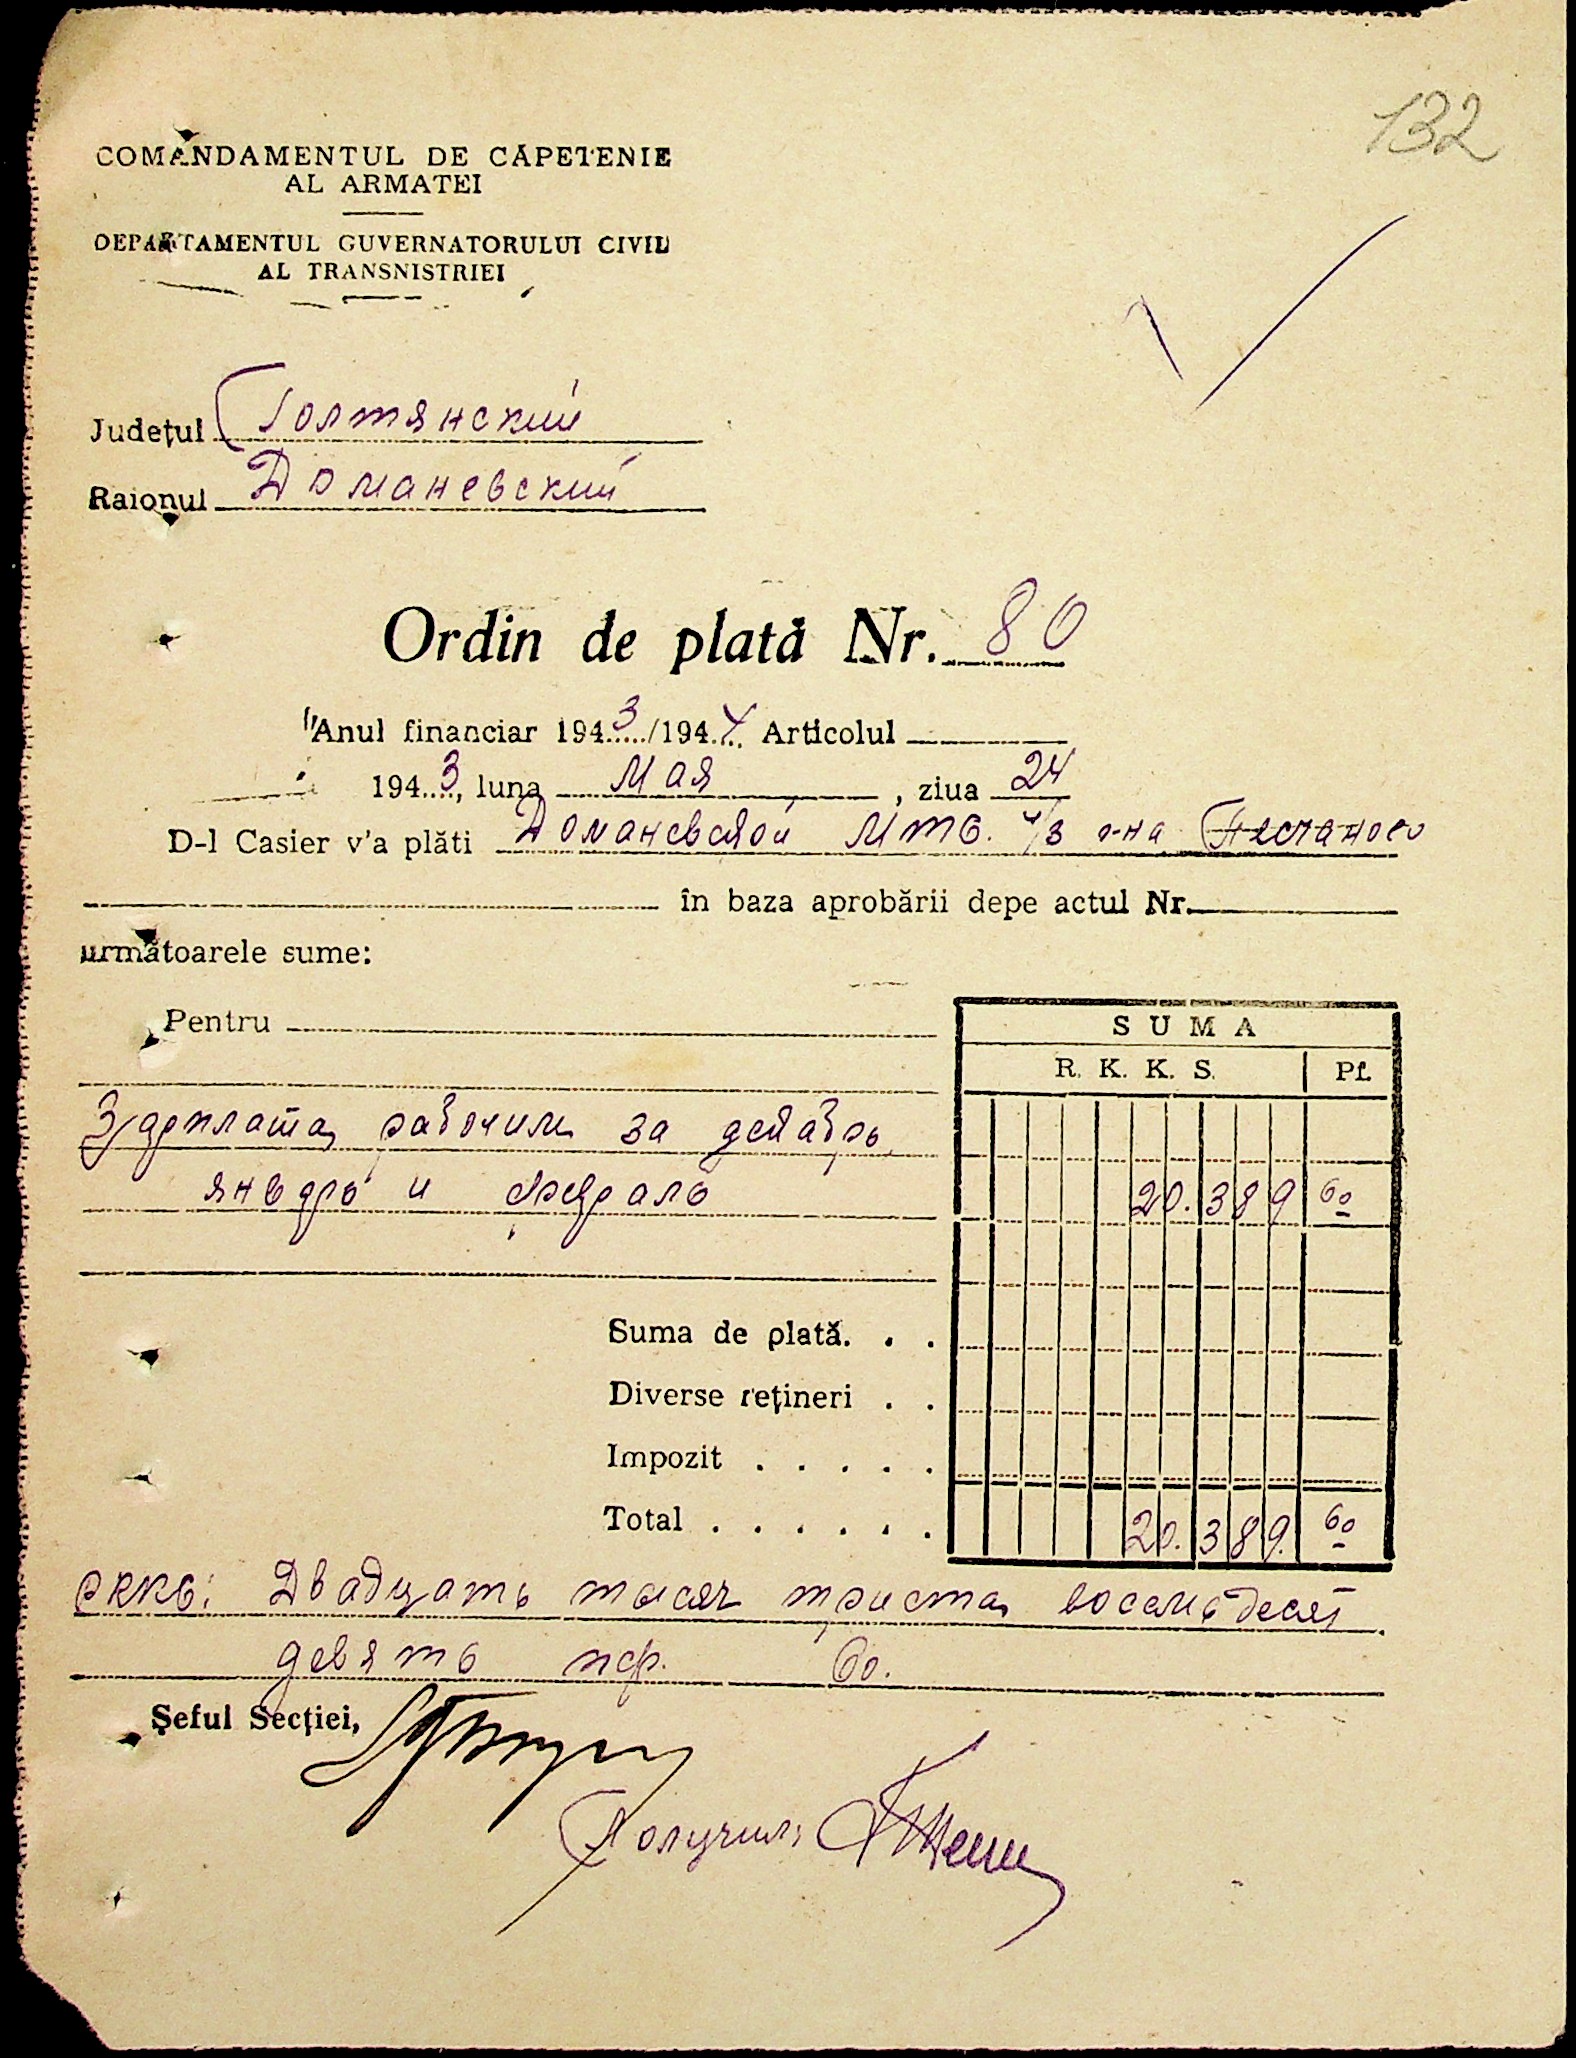 132
COMANDAMENTUL DE CĂPETENIE
AL ARMATEI
DEPARTAMENTUL GUVERNATORULUI CIVIL
AL TRANSNISTRIEI
Județul Голтянский
Raionul Доманевский
Ordin de plată Nr. 80
Anul financiar 1943/1944 Articolul
1943, luna Мая, ziua 24
D-l Casier v'a plăti Доманевской Мтс. ч/з г-на
în baza aprobării depe actul Nr.
următoarele sume:
Pentru
SUMA
R. K. K. S. Pf.
Зарплата рабочим за декабрь,
январь и февраль 20.389 60
Suma de plată. . .
Diverse rețineri . .
Impozit . . . . .
Total . . . . . . 20.389. 60
рккс: Двадцать тысяч триста восемьдесят
девять пф. 60.
Șeful Secției,
Получил: